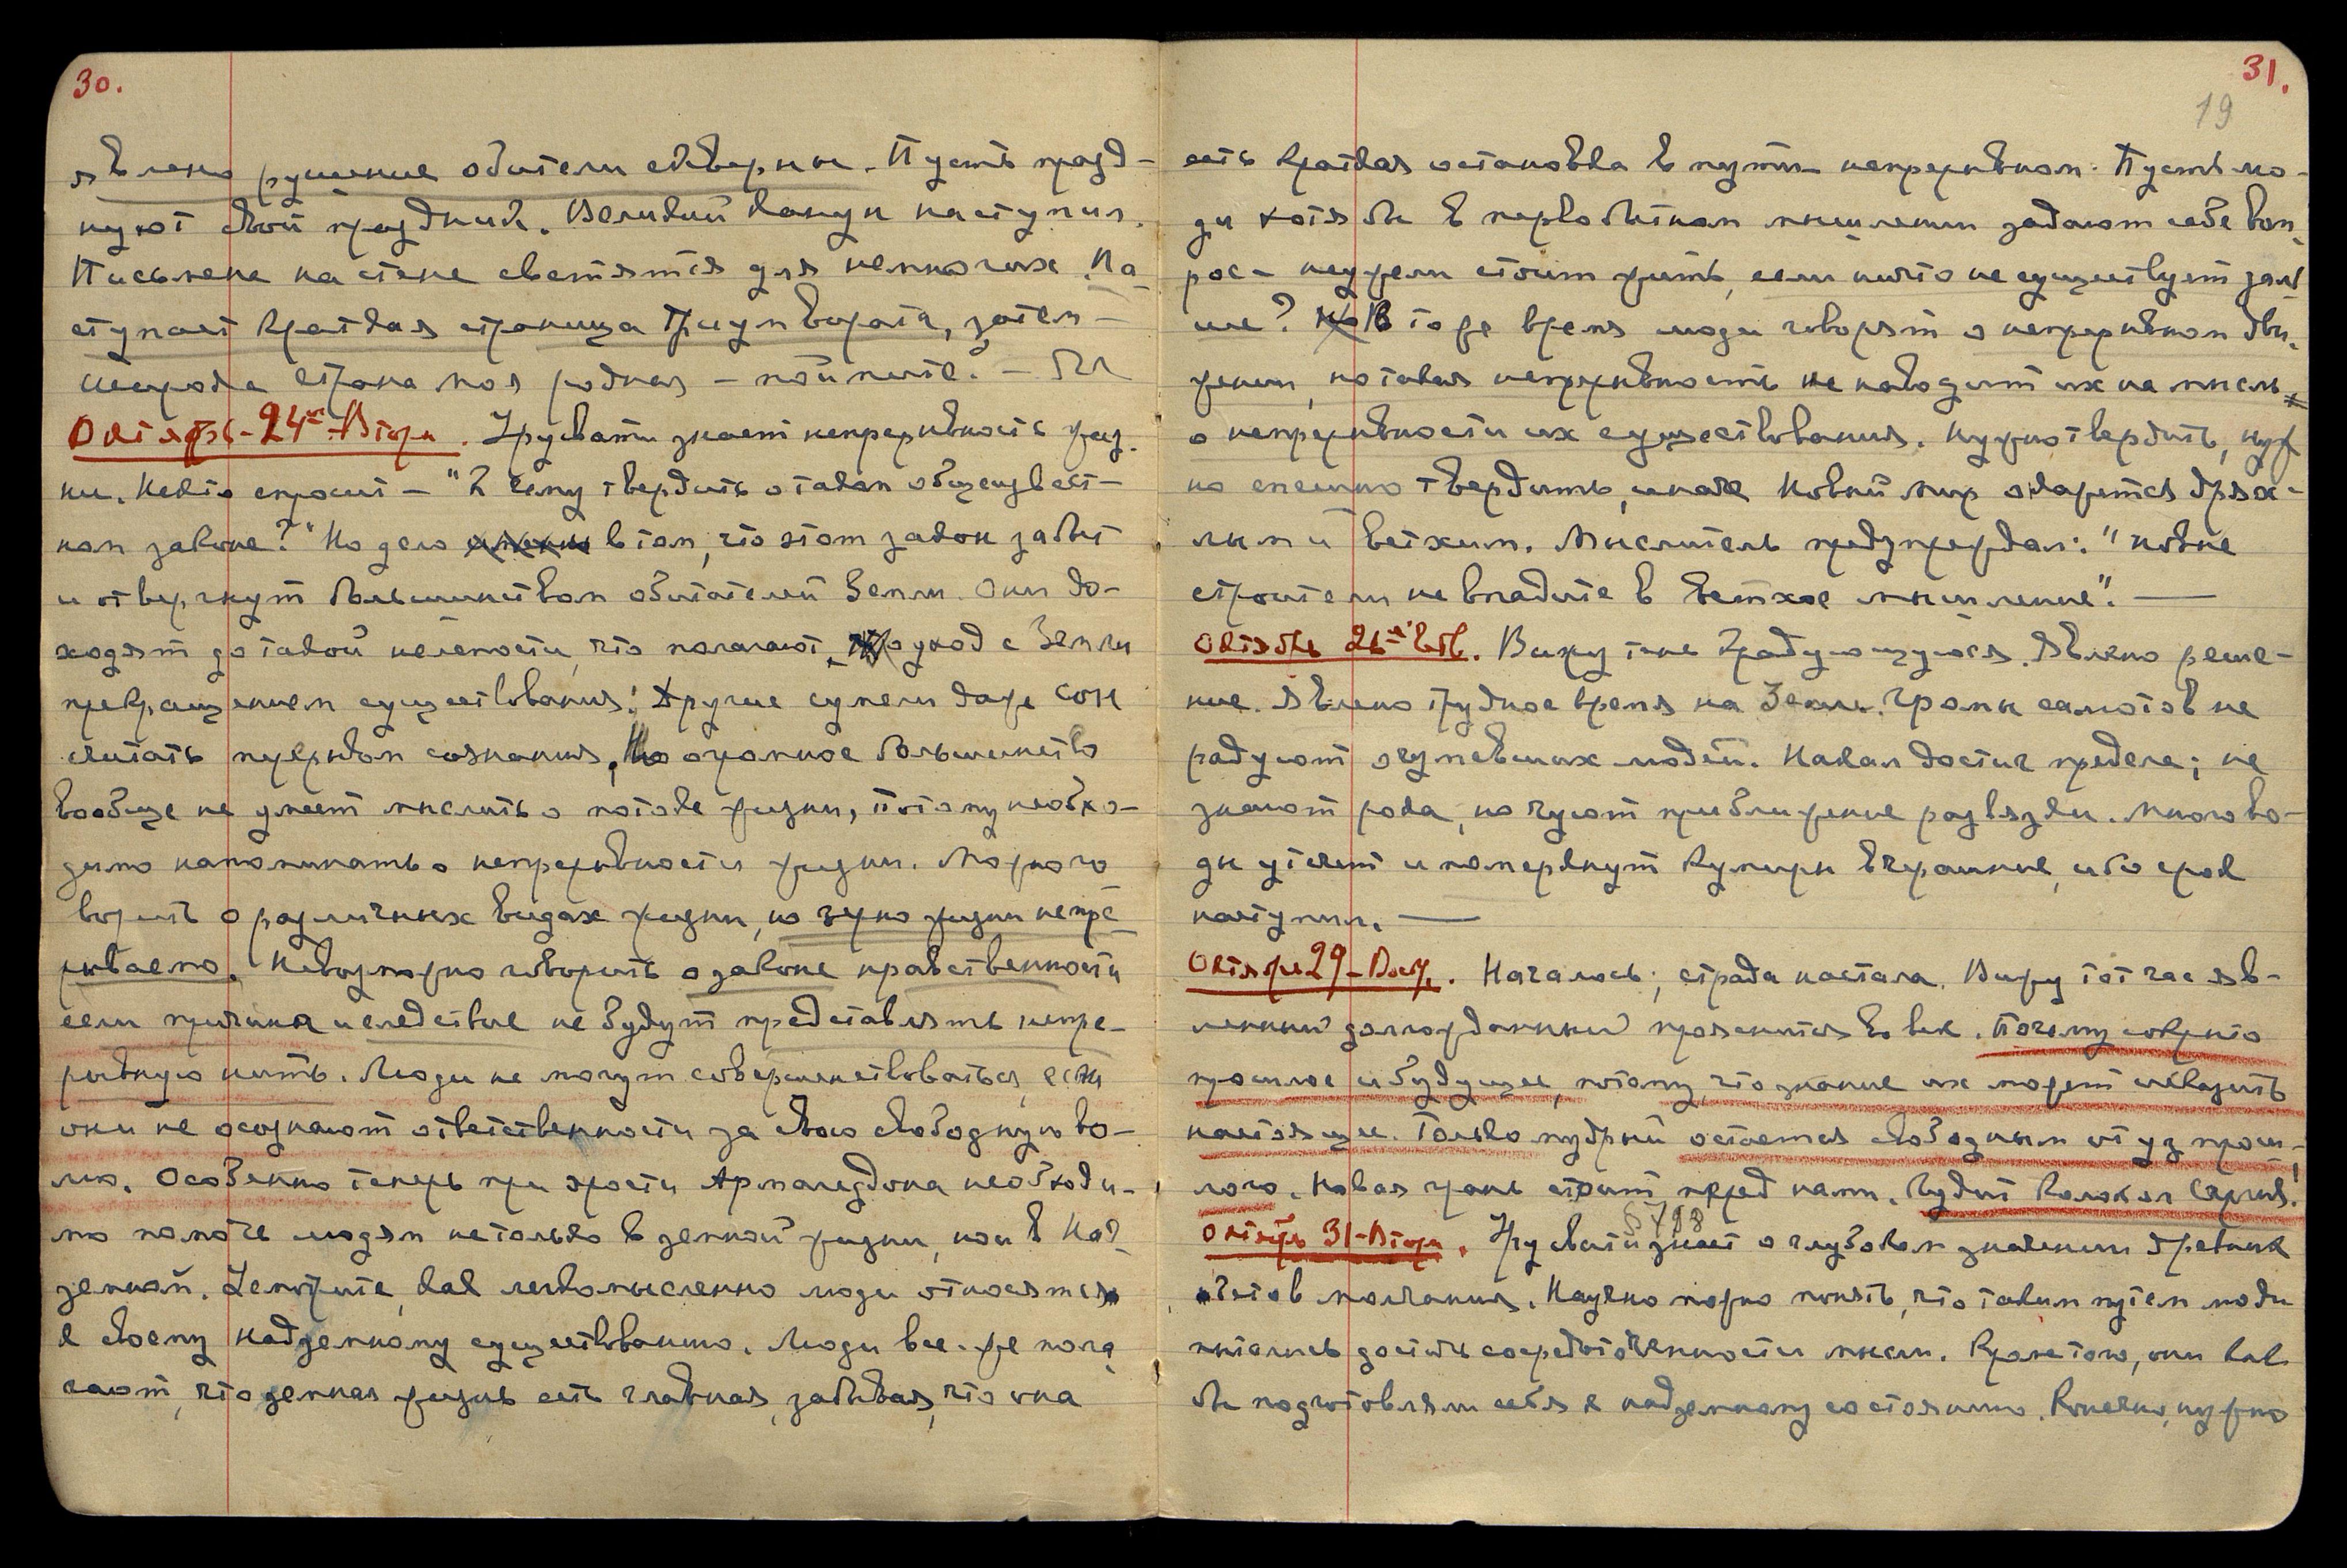 30.
явлено рушение обители скверны. Пусть празд-
нуют свой праздник. Великий канун наступил.
Письмена на стене светятся для немногих. На-
ступает краткая страница Триумвората, затем -
Октябрь-24-Вторн. Урусвати знает непрерывность жиз-
ни. Некто спросит - "К чему твердить о таком общеизвест-
ном законе?" Но дело в том, что этот закон забыт
и отвергнут большинством обитателей Земли. Они до-
ходят до такой нелепости, что полагают, уход с Земли
прекращением существования! Другие сумели даже сон
считать перерывом сознания. Но огромное большинство
вообще не умеет мыслить о потоке жизни, потому необхо-
димо напоминать о непрерывности жизни. Можно го
ворить о различных видах жизни, но зерно жизни непре-
рываемо. Невозможно говорить о законе нравственности
если причина и следствие не будут представлять непре-
рывную нить. Люди не могут совершенствоваться, если
они не осознают ответственности за свою свободную во-
лю. Особенно теперь при ярости Армагеддона необходи-
мо помочь людям не только в земной жизни, но и в Над-
земной. Смотрите, как легкомысленно люди относятся
к своему надземному существованию. Люди все-же пола
гают, что земная жизнь есть главная, забывая, что она
31.
19
есть краткая остановка в пути непрерывном. Пусть лю-
ди хотя бы в первобытном мышлении задают себе воп-
рос - неужели стоит жить, если ничто не существует даль
ше? В то же время люди говорят о непрерывном дви-
жении, но такая непрерывность не наводит их на мысль
о непрерывности их существования. Нужно твердить, нуж
но спешно твердить, иначе Новый мир окажется дрях-
лым и ветхим. Мыслитель предупреждал: "новые
строители не впадите в ветхое мышление". —
Октябрь 26-Четв. Вижу тебя радующуюся. Явлено реше-
ние. Явлено трудное время на Земле. Громы самолетов не
радуют огумевших людей. Накал достиг предела; не
знают рока, но чуют приближение развязки. Много во-
ды утечет и померкнут кумиры вчерашние, ибо срок
наступил. —
Октября 29-Воск. Началось; страда настала. Вижу тот час яв-
ленный долгожданный прояснится во век. Почему сокрыто
прошлое и будущее, потому, что знание их может исказить
настоящее. Только мудрый остается свободным от уз прош-
лого. Новая грань стоит пред нами. Гудит Колокол Сергия.
§ 798
Октябрь 31-Вторн. Урусвати знает о глубоком значении древних
обетов молчания. Научно можно понять, что таким путем люди
пытались достичь сосредоточенности мысли. Кроме того, они как
бы подготовляли себя к надземному состоянию. Конечно, нужно